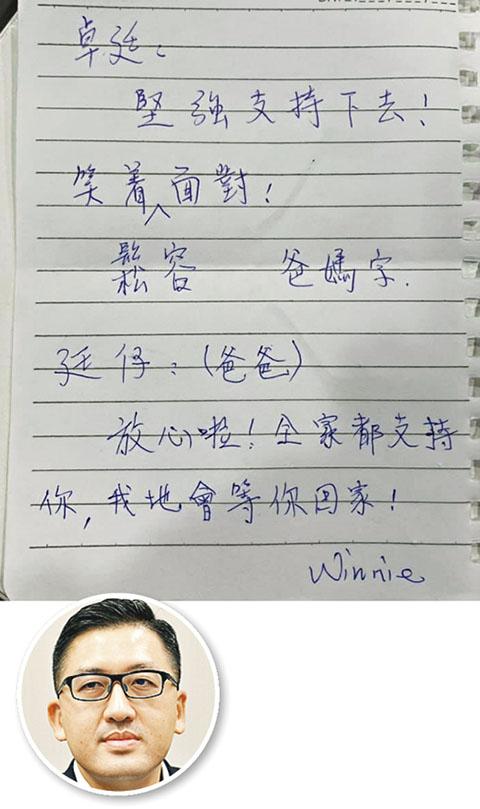 卓廷：
堅強支持下去！
笑着面對！
鬆容
爸媽字.
廷仔：(爸爸)
放心啦！全家都支持
你，我地會等你回家！
Winnie